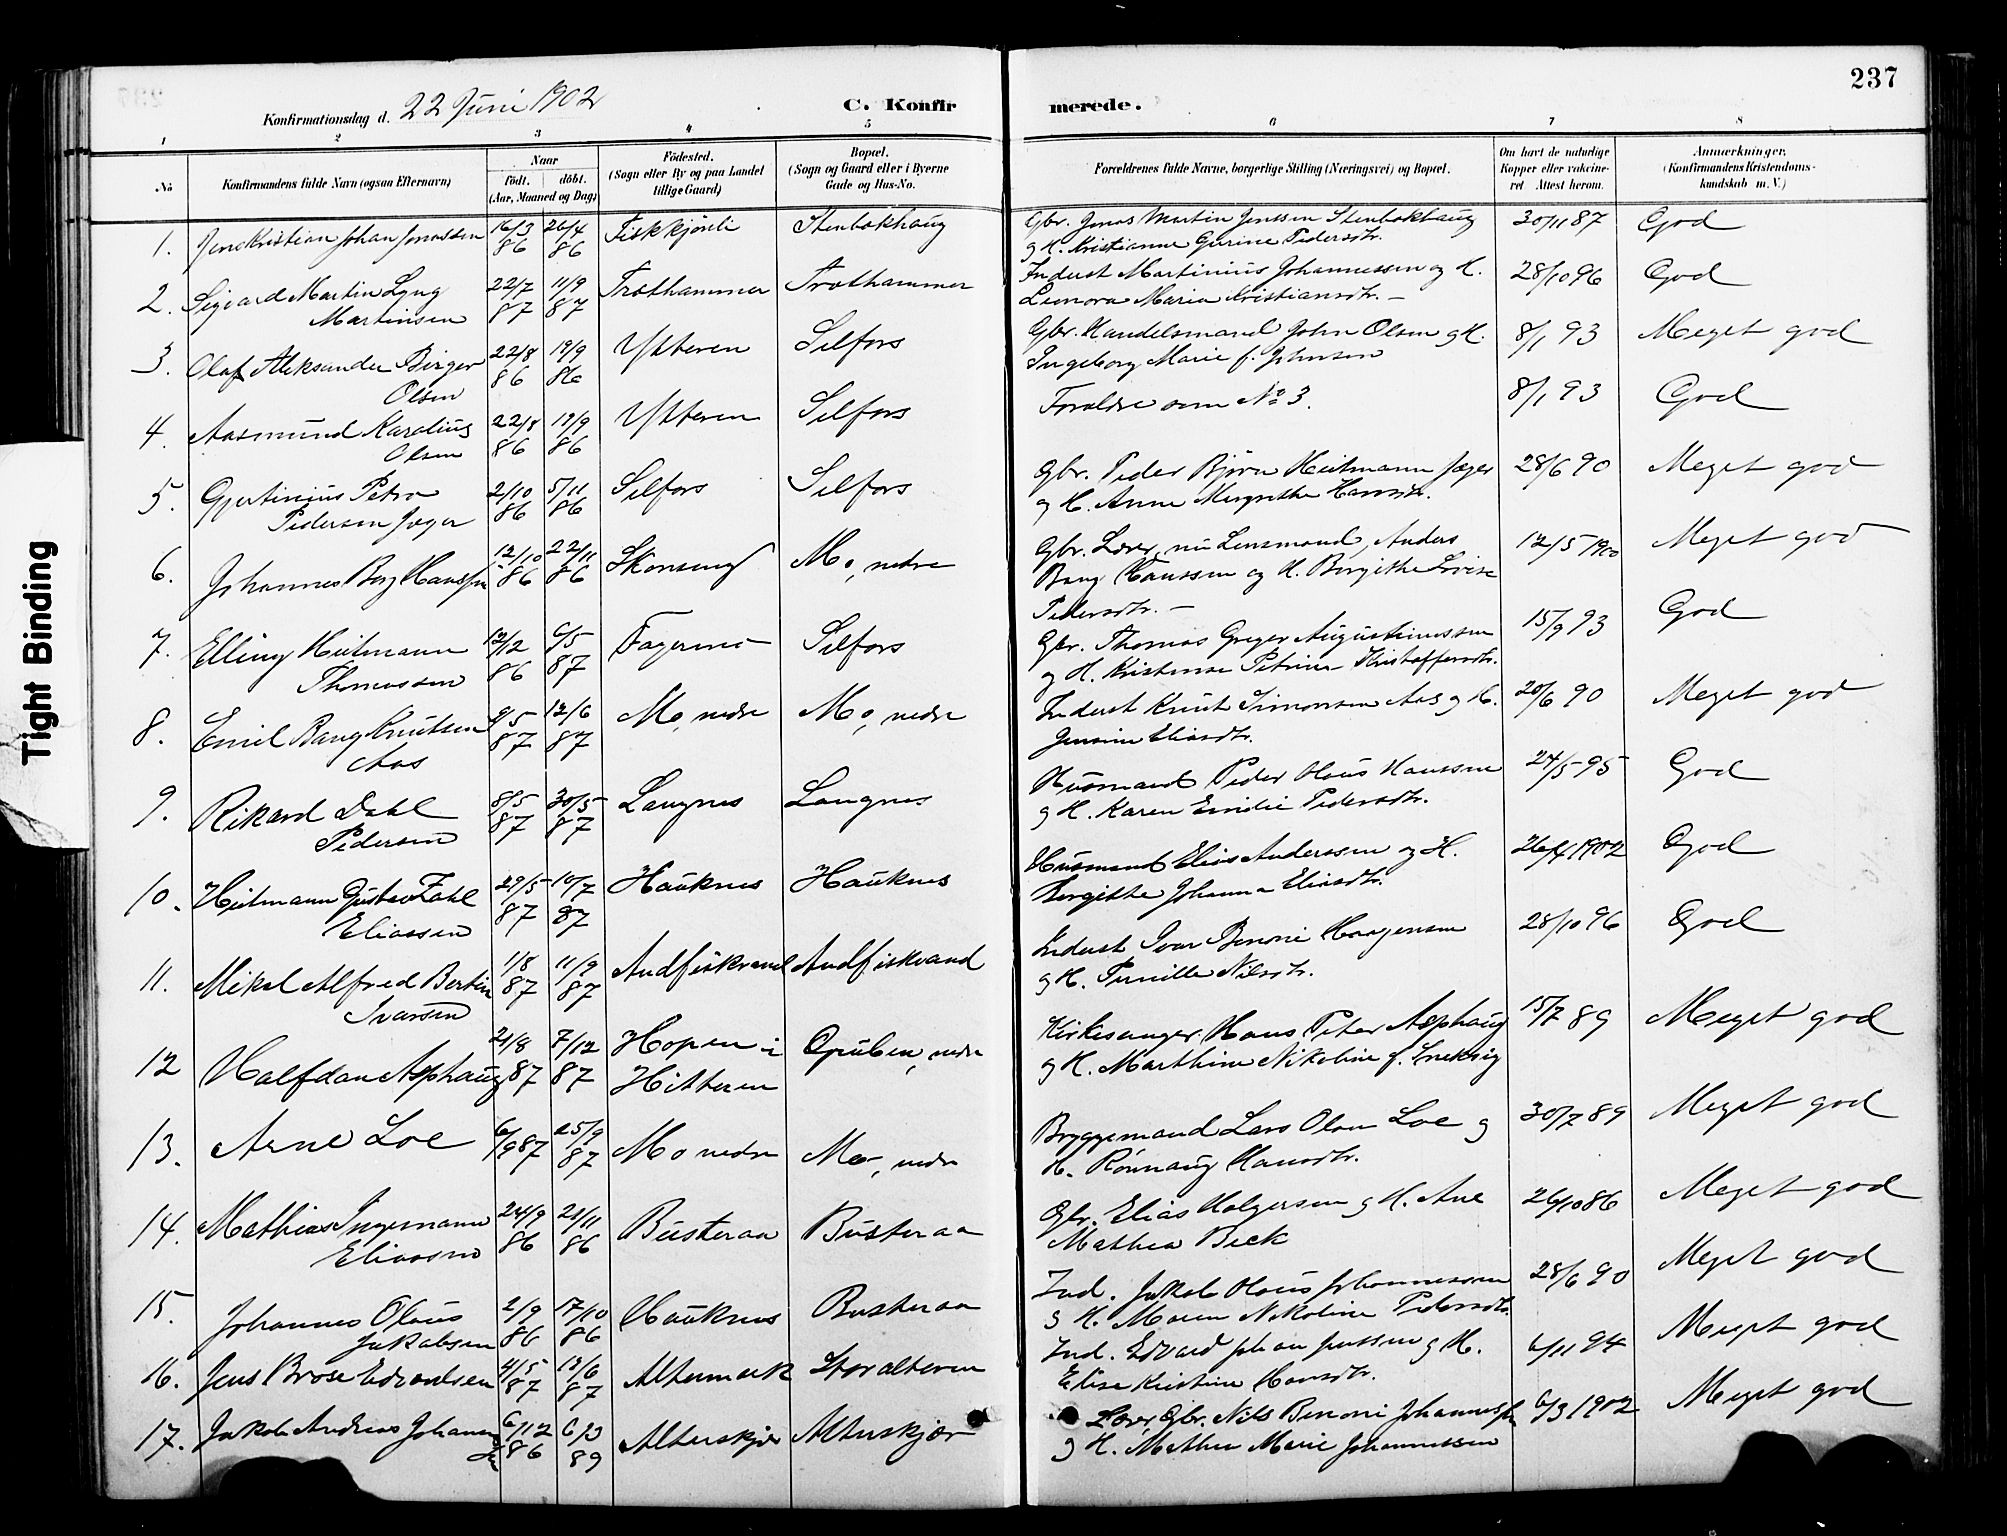 237
Konfirmationsdag d. 22 Juni 1902
C. Konfirmerede.
1 2 3 4 5 6 7 8
No
Konfirmandens fulde Navn (ogsaa Efternavn)
Naar
födt. döbt.
(Aar, Maaned og Dag)
Födested.
(Sogn eller By og paa Landet
tillige Gaard)
Bopæl.
(Sogn og Gaard eller i Byerne
Gade og Hus-No.
Forældrenes fulde Navne, borgerlige Stilling (Næringsvei) og Bopæl.
Om havt de naturlige
Kopper eller vakcine-
ret Attest herom.
Anmærkninger,
(Konfirmandens Kristendoms-
kundskab m. V.)
1. Jens Kristian Johan Jonassen 16/3 86 26/4 86 Fiskkjönli Stenbakhaug Gbr. Jonas Martin Jenssen Stenbakhaug
og H. Kristianne Gurine Pedersdtr. 30/11 87 God
2. Sigvard Martin Lyng
Martinsen 22/7 87 11/9 87 Trathammer Trathammer Inderst Martinius Johannessen og H.
Leonora Maria Kristiansdtr. – 28/10 96 God
3. Olaf Aleksander Birger
Olsen 22/8 86 19/9 86 Ytteren Selfors Gbr. Handelsmand John Olsen og H.
Ingeborg Marie f. Johnsen 8/1 93 Meget god
4. Aasmund Karolius
Olsen 22/8 86 19/9 86 Ytteren Selfors Forældre som No 3. 8/1 93 God
5. Gjertinius Petro
Pedersen Jæger 2/10 86 5/11 86 Selfors Selfors Gbr. Peder Björn Heitmann Jæger
og H. Anne Margrethe Hansdtr. 28/6 90 Meget god
6. Johannes Berg Hanssen 12/10 86 22/11 86 Skonseng Mo, nedre Gbr. Lærer, nu Lensmand, Anders
Bang Hanssen og H. Bergithe Lovise
Pedersdtr. – 12/5 1900 Meget god
7. Elling Heitmann
Thomassen 12/2 86 6/5 87 Fagernes Selfors Gbr. Thomas Greger Augustinussen
og H. Kristense Petrine Kristoffersdtr. 15/9 93 God
8. Emil Bang Knutsen
Aas 9/5 87 12/6 87 Mo, nedre Mo, nedre Inderst Knut Simonsen Aas og H.
Jensine Eliasdtr. 20/6 90 Meget god
9. Rikard Dahl
Pedersen 8/5 87 30/5 87 Langnes Langnes Husmand Peder Olaus Hanssen
og H. Karen Emilie Pedersdtr. 24/5 95 God
10. Heitmann Gustav Fahl
Eliassen 29/5 87 10/7 87 Hauknes Hauknes Husmand Elias Anderssen og H.
Bergithe Johanna Eliasdtr. 26/4 1902 God
11. Mikal Alfred Bertin
Ivarsen 1/8 87 11/9 87 Andfiskvand Andfiskvand Inderst Ivar Benoni Haagensen
og H. Pernille Nilsdtr. 28/10 96 God
12 Halfdan Asphaug 21/8 87 7/12 87 Hopen i
Hitteren Gruben, nedre Kirkesanger Hans Peter Asphaug
og H. Marthine Nikoline f. Sneksvig 15/7 89 Meget god
13. Arne Loe 6/9 87 25/9 87 Mo nedre Mo, nedre Bryggemand Lars Olsen Loe og
H. Rönnaug Hansdtr. 30/7 89 Meget god
14. Mathias Ingemann
Eliassen 24/9 86 21/11 86 Busteraa Busteraa Gbr. Elias Holgersen og H. Ane
Mathea Beck 26/10 86 Meget god
15. Johannes Olaus
Jakobsen 2/9 86 17/10 86 Hauknes Busteraa Ind. Jakob Olaus Johannessen
og H. Maren Nikoline Pedersdtr. 28/6 90 Meget god
16. Jens Brose Edvardsen 4/5 87 12/6 87 Altermark Storalteren Ind. Edvard Johan Jenssen og H.
Elise Kristine Hansdtr. 6/11 94 Meget god
17. Jakob Andreas Johannes
sen 6/12 86 6/3 89 Alterskjær Alterskjær Lærer, Gbr. Nils Benoni Johannessen
og H. Mathea Marie Johannessen 6/3 1902 Meget god
Tight Binding